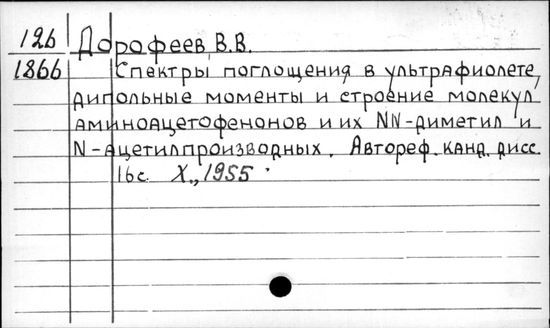 126 Дорофеев, В.В.
1866 Спектры поглощения в ультрафиолете,
дипольные моменты и строение молекул
аминоацетофенонов и их NN-диметил и
N-ацетилпроизводных. Автореф. канд. дисс.
16с. Х., 1955.